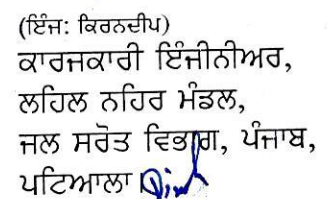 (ਇੰਜ: ਕਿਰਨਦੀਪ)
ਕਾਰਜਕਾਰੀ ਇੰਜੀਨੀਅਰ,
ਲਹਿਲ ਨਹਿਰ ਮੰਡਲ,
ਜਲ ਸਰੋਤ ਵਿਭਾਗ, ਪੰਜਾਬ,
ਪਟਿਆਲਾ